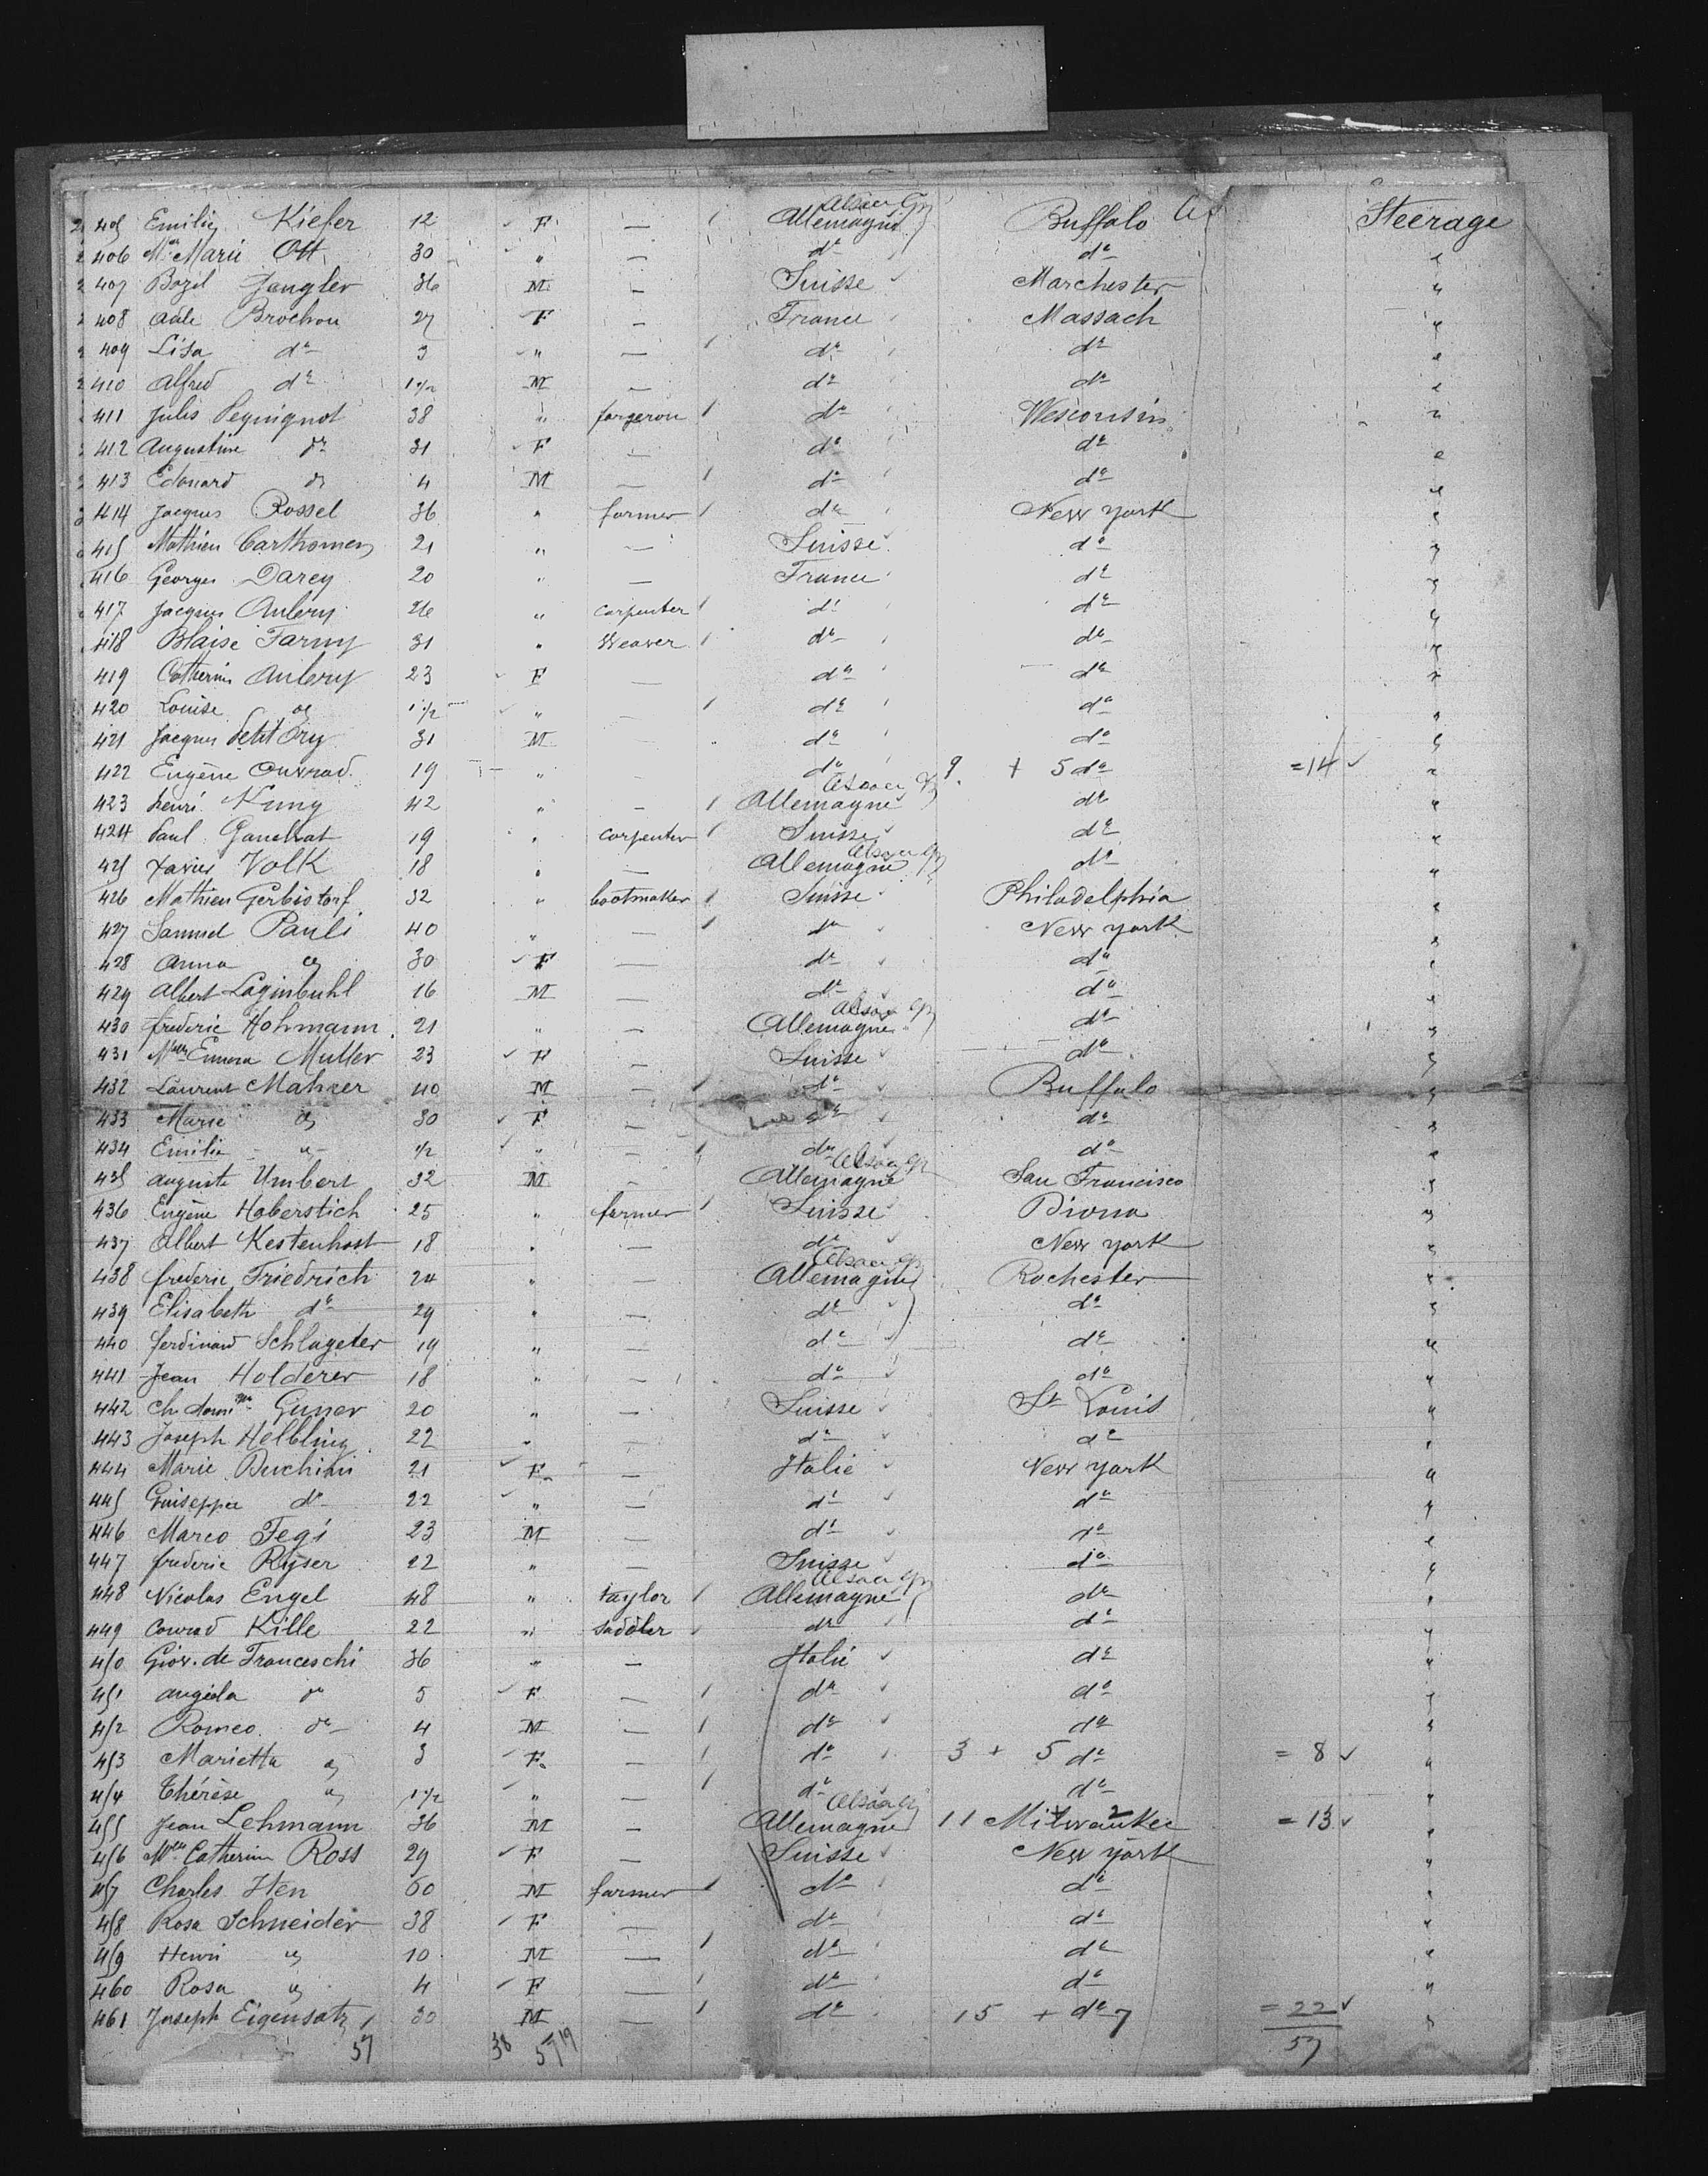 405 Emilie Kiefer 12 F — Allemagne Alsace Buffalo Steerage
406 Mme Marie Ott 30 " — do do "
407 Bazil Jangler 36 M — Suisse Marchester "
408 Adèle Brochon 27 F — France Massach "
409 Lisa do 3 " — do do "
410 Alfred do 1 1/2 M — do do "
411 Jules Pequignot 38 " forgeron do Wesconsin "
412 Augustine do 31 F — do do "
413 Edouard do 4 M — do do "
414 Jacques Rossel 36 " farmer do New york "
415 Mathieu Carthomen 21 " — Suisse do "
416 Georges Darey 20 " — France do "
417 Jacques Aubery 26 " carpenter do do "
418 Blaise Farny 31 " Weaver do do "
419 Catherine Aubery 23 F — do do "
420 Louise do 1 1/2 " — do do "
421 Jacques Petit Ory 31 M do do "
422 Eugène Conrad 19 " do 9 + 5 do = 14 "
423 henri Kuny 42 " — Allemagne Alsace do "
424 Paul Ganelrat 19 " carpenter Suisse do "
425 Xavier Volk 18 " — Allemagne Alsace do "
426 Mathieu Gerbistorf 32 " bootmaker Suisse Philadelphia "
427 Samuel Pauli 40 " — do New york "
428 Anna do 30 F — do do "
429 Albert Laginbuhl 16 M — do do "
430 frederic Hohmann 21 " — Allemagne Alsace do "
431 Melle Emma Muller 23 F — Suisse do "
432 Laurent Mahrer 40 M — do Buffalo "
433 Marie do 30 F — do do "
434 Emilie do 1/2 " — do do "
435 auguste Umbert 32 M — Allemagne Alsace San Francisco "
436 Eugène Haberstich 25 " farmer Suisse Diona "
437 Albert Kestenhost 18 " — do New york "
438 frederic Friedrich 24 " — Allemagne Alsace Rochester "
439 Elisabeth do 29 " — do do "
440 ferdinand Schlageter 19 " — do do "
441 Jean Holderer 18 " — do do "
442 Ch. Gunor 20 " — Suisse St Louis "
443 Joseph Helbling 22 " — do do "
444 Marie Duchini 21 F — Italie New york "
445 Guiseppe do 22 " — do do "
446 Marco Tegi 23 M — do do "
447 frederic Ryser 22 " — Suisse do "
448 Nicolas Engel 48 " taylor Allemagne Alsace do "
449 Conrad Kille 22 " saddler do do "
450 Giov. de Franceschi 36 " — Italie do "
451 angela do 5 F — do do "
452 Romeo do 4 M — do do "
453 Marietta do 3 F — do 3 + 5 do = 8 "
454 Thérèse do 1 1/2 " — do do "
455 Jean Lehmann 36 M — Allemagne Alsace 11 Milwaukee 2 = 13 "
456 Melle Catherine Ross 29 F — Suisse New york "
457 Charles Hen 60 M farmer do do "
458 Rosa Schneider 38 F — do do "
459 Henri do 10 M — do do "
460 Rosa do 4 F — do do "
461 Joseph Eigensatz 30 M — do 15 + do 7 = 22 "
57 38 57 19 57